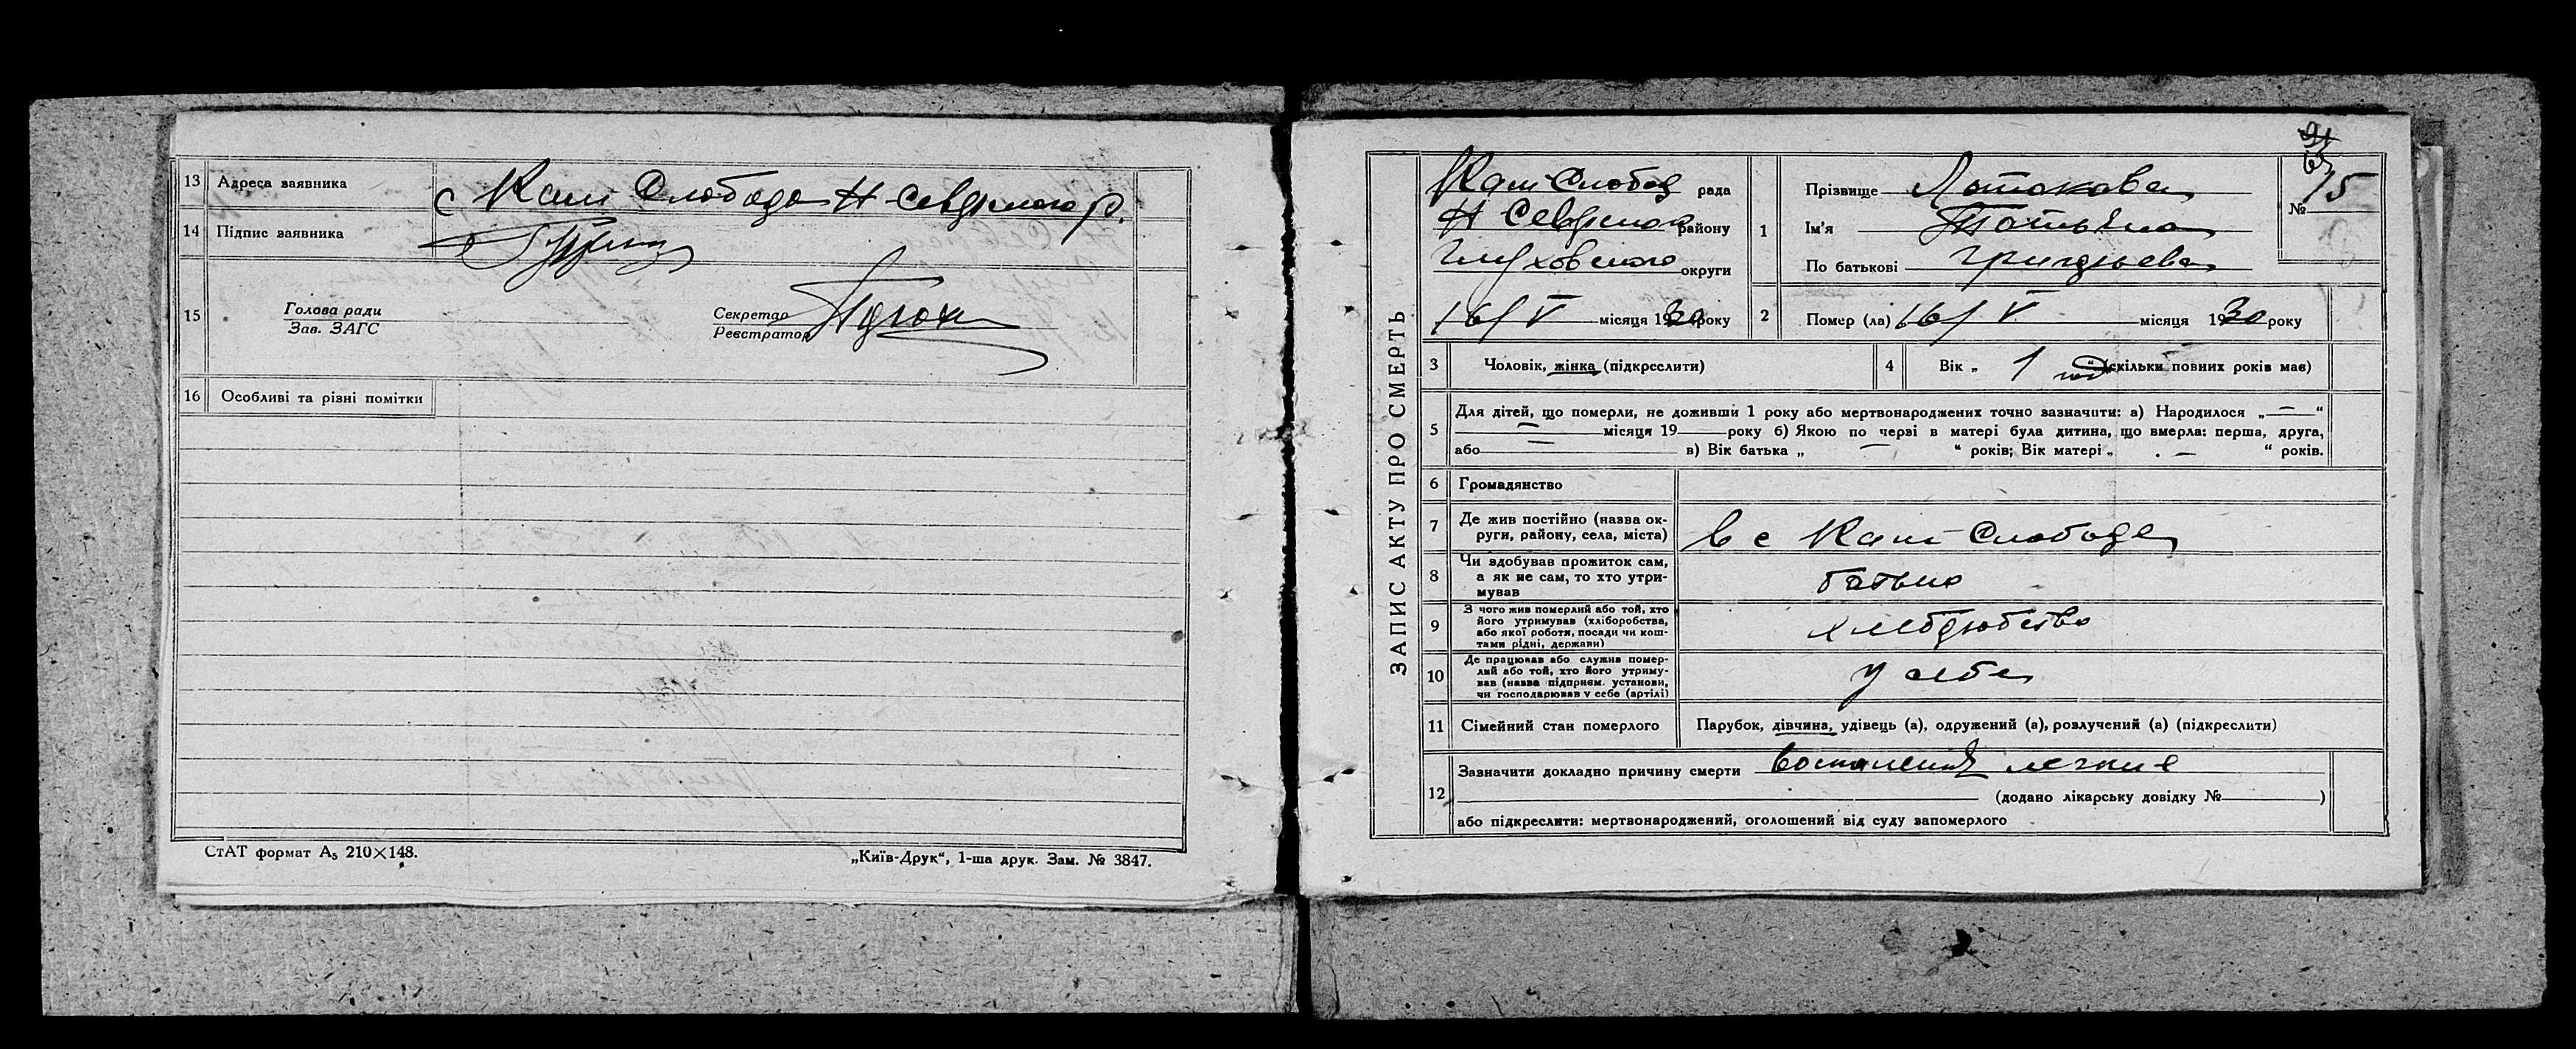 13 Адреса заявника с Кам Слобода Н Севрского р.
14 Підпис заявника
15 Голова ради
Зав. ЗАГС
Секретар
Реєстратор
16 Особливі та різні помітки
СтАТ формат А₅ 210×148.
„Київ-Друк“, 1-ша друк. Зам. № 3847.
ЗАПИС АКТУ ПРО СМЕРТЬ
Кам Слобод рада
Н Севрского району
Глуховского округи
16/V місяця 1930 року
1 Прізвище
Ім'я Татьяна
По батькові Григорьева
№ 15
2 Помер (ла) 16/V місяця 1930 року
3 Чоловік, жінка (підкреслити)
4 Вік „ 1 год “ (скільки повних років має)
5 Для дітей, що померли, не доживши 1 року або мертвонароджених точно зазначити: а) Народилося „ — “
— місяця 19 року б) Якою по черзі в матері була дитина, що вмерла: перша, друга,
або — в) Вік батька „ — “ років; Вік матері „ — “ років.
6 Громадянство
7 Де жив постійно (назва ок-
руги, району, села, міста) в с Кам Слободе
8 Чи здобував прожиток сам,
а як не сам, то хто утри-
мував батько
9 З чого жив померлий або той, хто
його утримував (хліборобства,
або якої роботи, посади чи кош-
тами рідні, держави) хлеборобство
10 Де працював або служив помер-
лий або той, хто його утриму-
вав (назва підприєм. установи,
чи господарював у себе (артілі) у себе
11 Сімейний стан померлого Парубок, дівчина, удівець (а), одружений (а), розлучений (а) (підкреслити)
12 Зазначити докладно причину смерти воспаление легких
(додано лікарську довідку № )
або підкреслити: мертвонароджений, оголошений від суду запомерлого